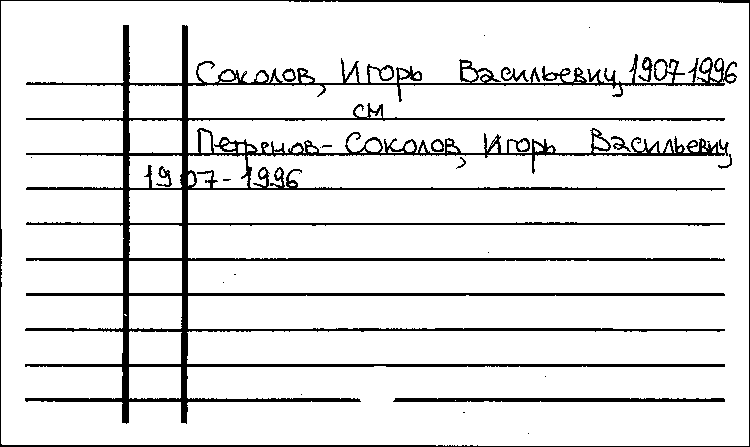 Соколов, Игорь Васильевич, 1907-1996
см.
Петренов-Соколов, Игорь Васильевич,
1907-1996